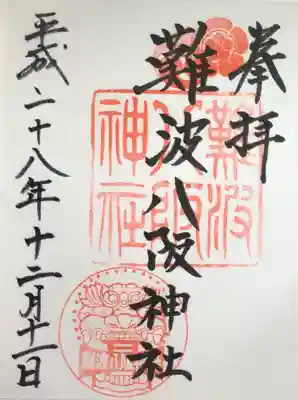 奉拝
難波八阪神社
平成二十八年十二月十一日
難波
八阪
神社